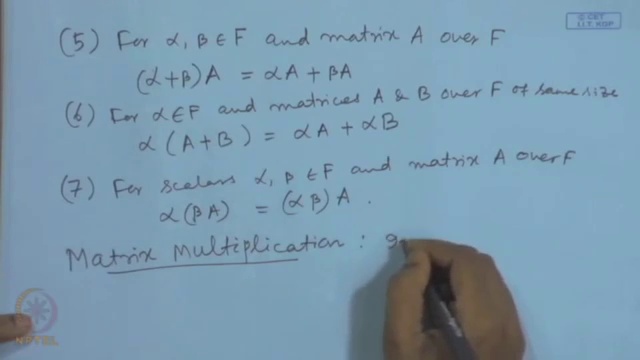 © CET
I.I.T. KGP
(5) For α, β ∈ F and matrix A over F
(α+β)A = αA + βA
(6) For α ∈ F and matrices A & B over F of same size
α (A+B) = αA + αB
(7) For scalars α, β ∈ F and matrix A over F
α(βA) = (αβ)A .
Matrix Multiplication :
NPTEL